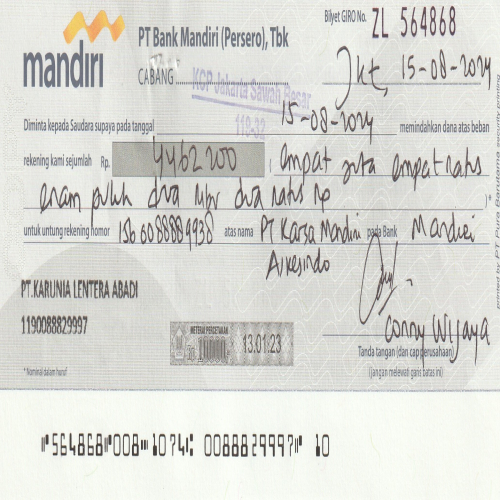 Bilyet GIRO No. ZL 564868
mandiri
PT Bank Mandiri (Persero), Tbk
CABANG
KCP Jakarta Sawah Besar
119-32
Jkt, 15-08-2024
Diminta kepada Saudara supaya pada tanggal 15-08-2024 memindahkan dana atas beban
rekening kami sejumlah Rp. 4462200 ( empat juta empat ratus
enam puluh dua ribu dua ratus Rp )*
untuk untung rekening nomor 1560088889938 atas nama PT Karsa Mandiri pada Bank Mandiri
Alkesindo
PT.KARUNIA LENTERA ABADI
1190088829997
METERAI PERCETAKAN
13.01.23
Conny Wijaya
Tanda tangan (dan cap perusahaan)
(jangan melewati garis batas ini)
* Nominal dalam huruf
printed by PT. Pura Barutama security printing
⑈564868⑈008⑉1074⑆ 0088829997⑈ 10